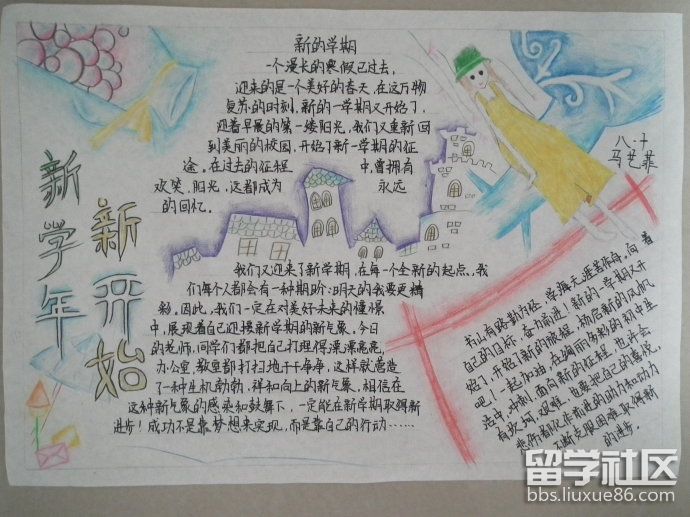 新的学期
一个漫长的寒假已过去，
迎来的是一个美好的春天，在这万物
复苏的时刻，新的一学期又开始了，
迎着早晨的第一缕阳光，我们又重新回
到美丽的校园，开始了新一学期的征
途，在过去的征程中，曾拥有
欢笑、阳光，这都成为永远
的回忆。
八·十
马艺菲
新学年
新开始
我们又迎来了新学期，在每一个全新的起点，我
们每个人都会有一种期盼：明天的我要更精
彩。因此，我们一定在对美好未来的憧憬
中，展现着自己迎接新学期的新气象，今日
的老师，同学们都把自己打理得漂漂亮亮，
办公室，教室都打扫地干干净净，这样就营造
了一种生机勃勃，祥和向上的新气象，相信在
这种新气象的感染和鼓舞下，一定能在新学期取得新
进步！成功不是靠梦想来实现，而是靠自己的行动……
书山有路勤为径，学海无涯苦作舟，向着
自己的目标，奋力前进！新的一学期又开
始了，开始了新的旅程，扬启新的风帆
吧！一起加油，在绚丽多彩的初中生
活中，冲刺，面向新的征程，也许会
有坎坷，艰难，也要把自己的喜悦，
悲伤都化作前进的动力和动力
不断克服困难，取得新
的进步。
留学社区
bbs.liuxue86.com